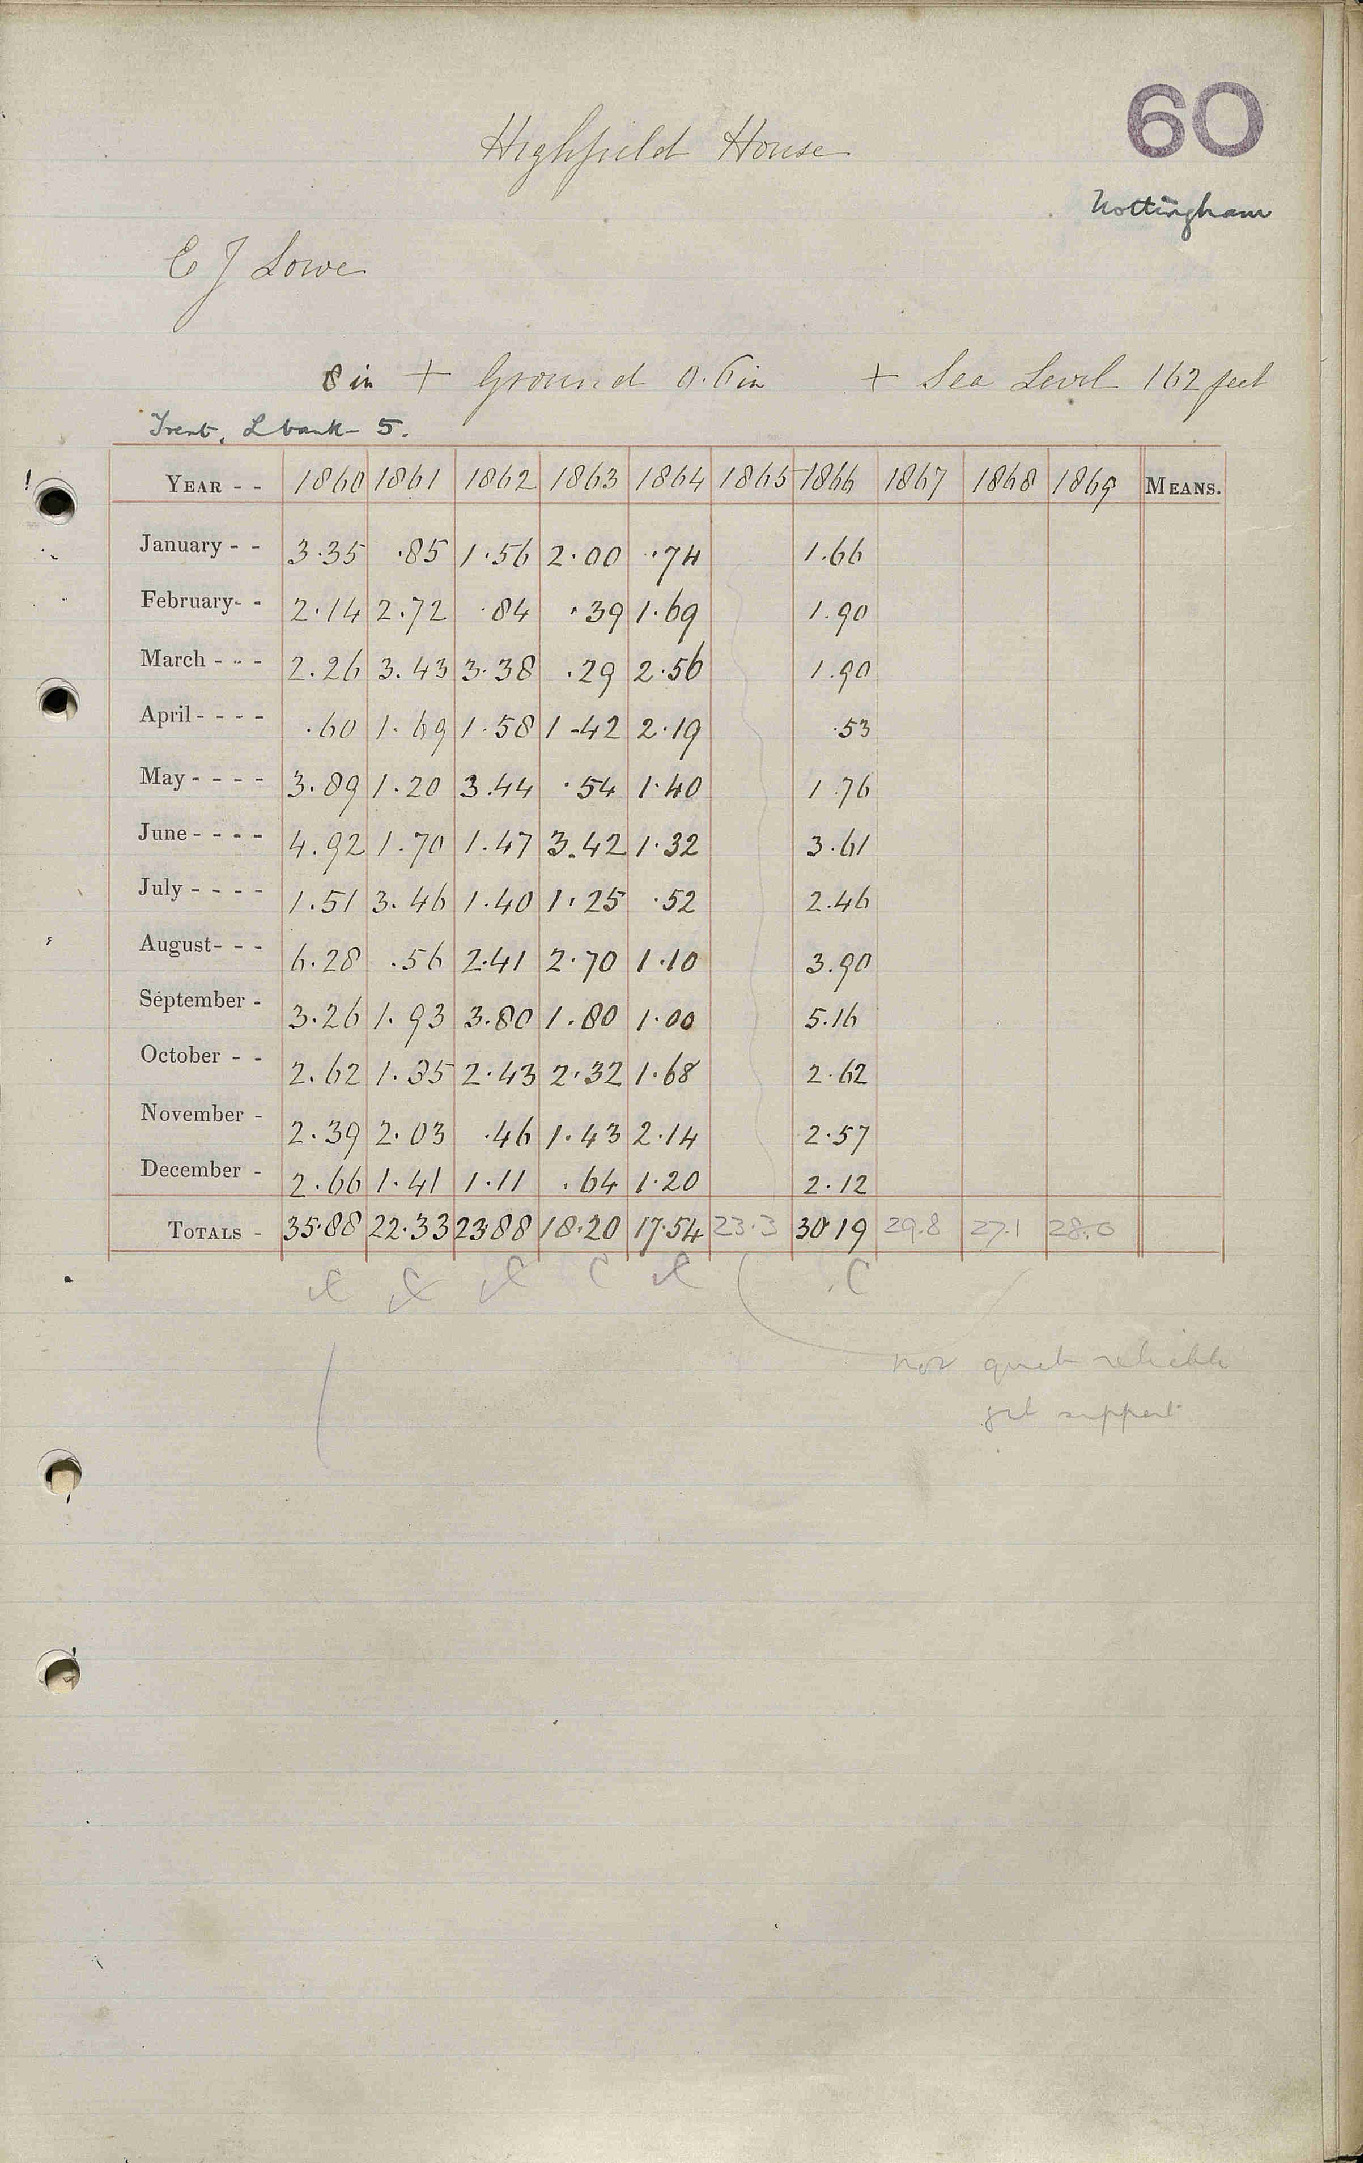 60
Highfield House
Nottingham
E J Lowe
8 in + Ground 0.6in + Sea Level 162 feet
Trent, L bank 5.
YEAR - - 1860 1861 1862 1863 1864 1865 1866 1867 1868 1869 MEANS.
January - - 3.35 .85 1.56 2.00 .74 1.66
February- - 2.14 2.72 .84 .39 1.69 1.90
March - - - 2.26 3.43 3.38 .29 2.56 1.90
April - - - - .60 1.69 1.58 1.42 2.19 .53
May - - - - 3.89 1.20 3.44 .54 1.40 1.76
June - - - - 4.92 1.70 1.47 3.42 1.32 3.61
July - - - - 1.51 3.46 1.40 1.25 .52 2.46
August- - - 6.28 .56 2.41 2.70 1.10 3.90
September - 3.26 1.93 3.80 1.80 1.00 5.16
October - - 2.62 1.35 2.43 2.32 1.68 2.62
November - 2.39 2.03 .46 1.43 2.14 2.57
December - 2.66 1.41 1.11 .64 1.20 2.12
TOTALS - 35.88 22.33 23.88 18.20 17.54 23.3 30.19 29.8 27.1 28.0
C C
not quite reliable
get support